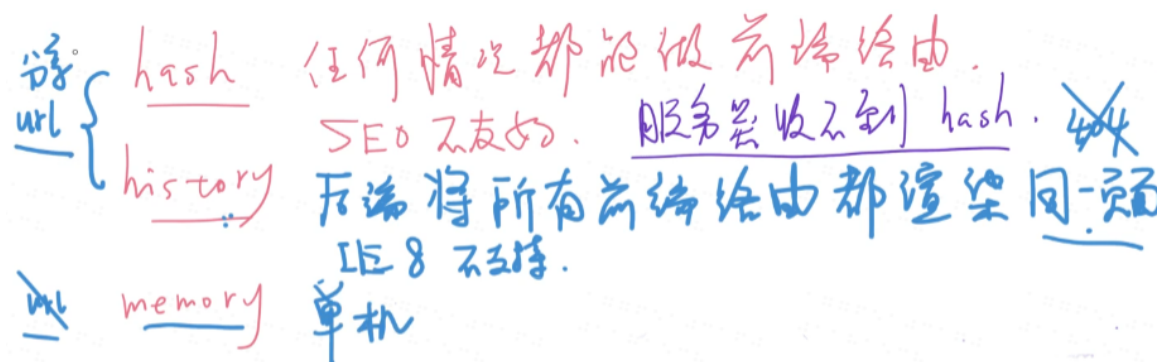 hash 任何情况都能做前端路由.
分享 SEO 不友好. 服务器收不到 hash. 404
url
history 后端将所有前端路由都渲染同一页面
IE 8 不支持.
url memory 单机